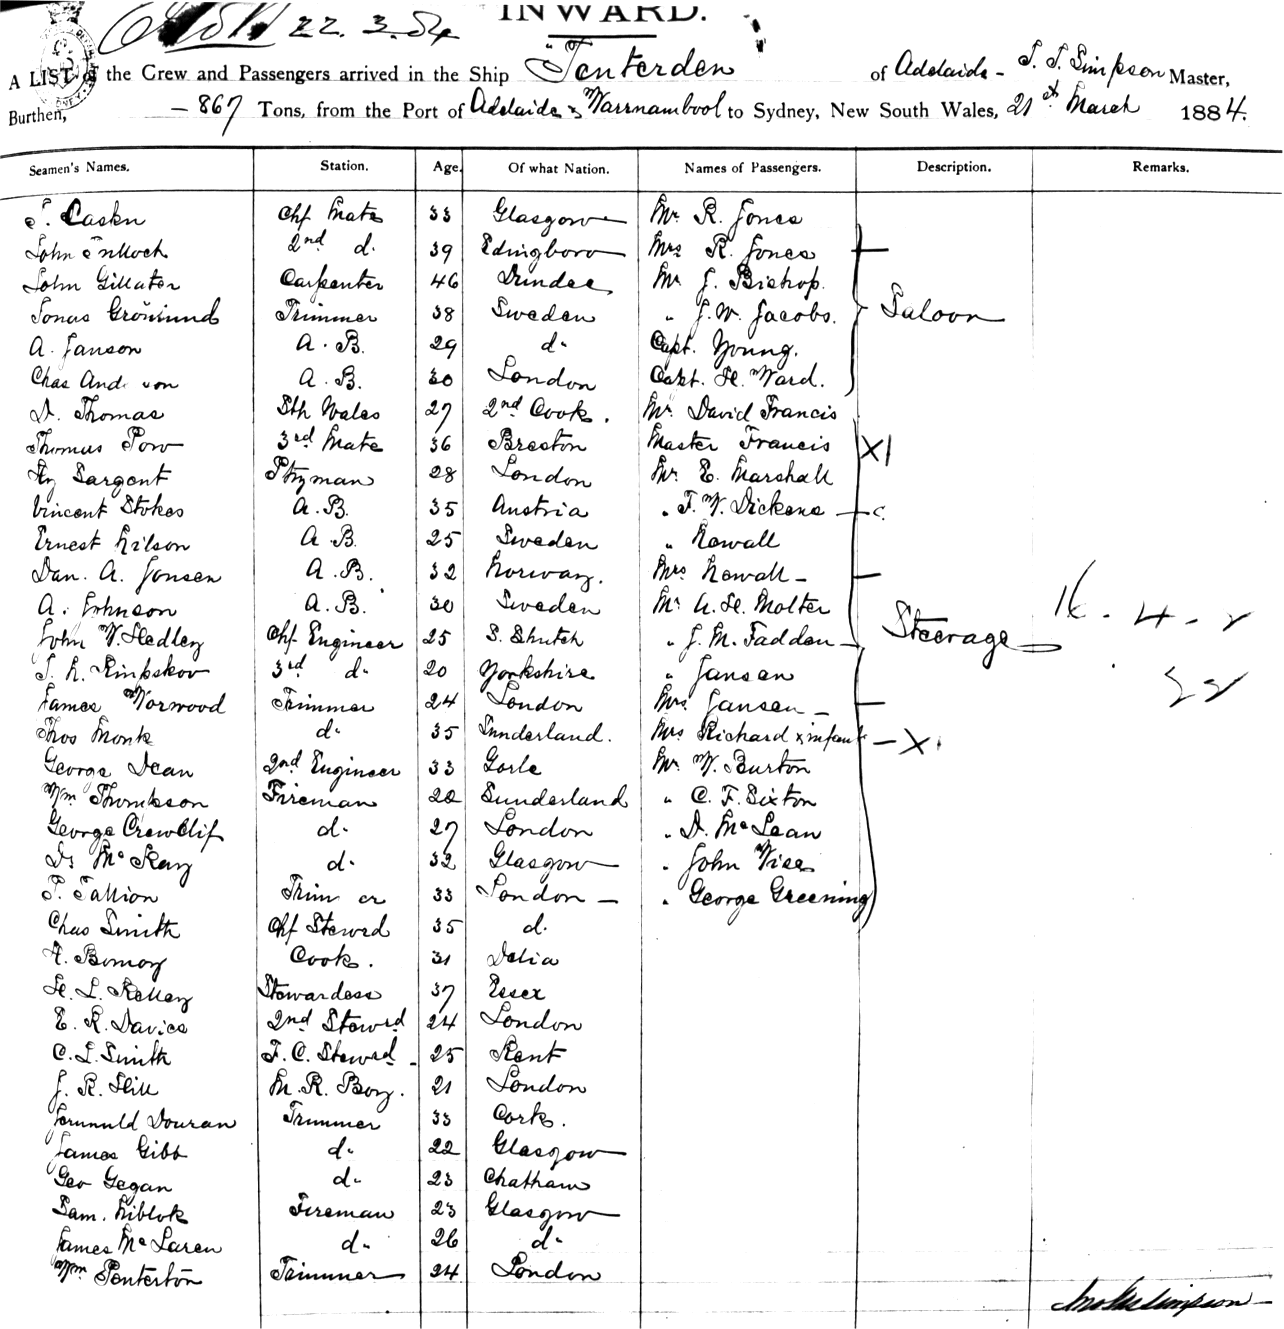 22.3.84
INWARD.
A LIST of the Crew and Passengers arrived in the Ship "Tenterden of Adelaide - Simpson Master,
Burthen, - 867 Tons, from the Port of Adelaide & Warrnambool to Sydney, New South Wales, 21st March 1884.
Seamen's Names. Station. Age. Of what Nation. Names of Passengers. Description. Remarks.
Chf Mate 33 Glasgow Mr R. Jones
John 2nd d. 39 Edingboro Mrs R. Jones
John Gillater Carpenter 46 Dundee Mr J. Bishop.
Trimmer 38 Sweden " J. W. Jacobs. Saloon
A. Janson A. B. 29 d. Capt. Young.
Chas A. B. 30 London Capt. H. Ward.
D. Thomas Sth Wales 27 2nd Cook. Mr David Francis
Thomas Pow 3rd Mate 36 Breston Master Francis X1
Hy Sargent 28 London Mr E. Marshall
Vincent Stokes A. B. 35 Austria " F. W. Dickens - c.
Ernest Nilson A B. 25 Sweden " Newall
Dan. A. Jonsen A. B. 32 Norway. Mrs Newall -
A. Johnson A. B. 30 Sweden Mr A. H. Molter
John W. Hedley Chf Engineer 25 S. Shutch " J. M. Fadden - Steerage
3rd d. 20 Yorkshire " Jansen
James Norwood Trimmer 24 London Mrs Jansen -
Thos Monk d. 35 Sunderland. Mrs Richard & infant - X
George Dean 2nd Engineer 33 Gorle Mr W. Burton
Wm Thomson Fireman 28 Sunderland " C. F. Sixton
George d. 27 London " D. McLean
McKay d. 32 Glasgow " John Wise
T. Tallion 33 London - " George Greening
Chas Smith Chf Steward 35 d.
Cook. 31 Delia
H. L. Kelley Stewardess 37 Essex
E. R. Davies 2nd Steward 24 London
C. L. Smith F. C. Steward - 25 Kent
J. R. Hill M. R. Boy. 21 London
Douran Trimmer 33 Cork.
James Gibb d. 22 Glasgow
Geo Gegan d. 23 Chatham
Sam. Niblok Fireman 23 Glasgow
James McLaren d. 26 d.
Wm Penterton Trimmer 24 London